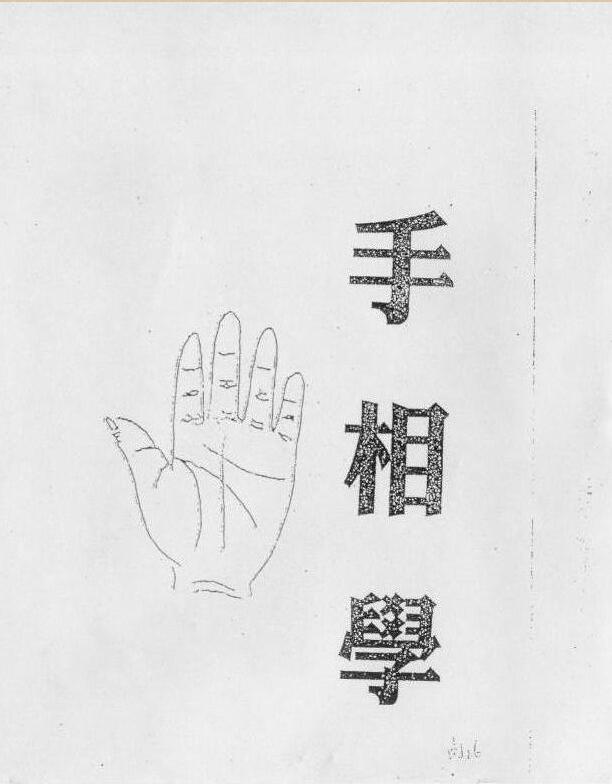 手相學